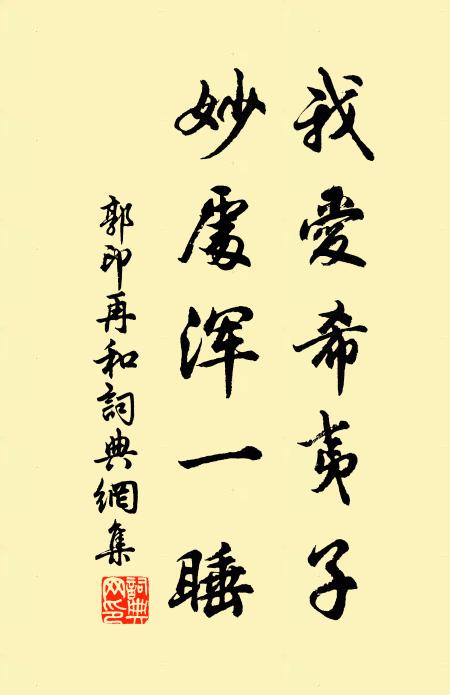 我愛希夷子
妙處渾一睡
郭印再和詞典網集
詞典網印